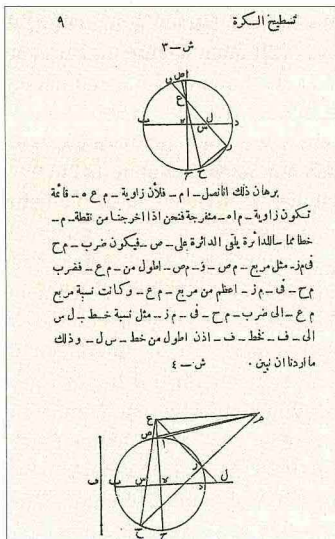 تسطيح الكرة ٩
ش — ٣
برهان ذلك انا نصل _ ا م _ فلأن زاوية _ م ع ه _ قائمة
تكون زاوية _ م ا ه _ منفرجة فنحن اذا اخرجنا من نقطة _ م _
خطا مماسا للدائرة يلقى الدائرة على _ ص _ فيكون ضرب _ م ح
فى م ز _ مثل مربع _ م ص _ و _ م ص _ اطول من _ م ع _ فضرب
م ح _ فى _ م ز _ اعظم من مربع _ م ع _ وكانت نسبة مربع
م ع _ الى ضرب _ م ح _ فى _ م ز _ مثل نسبة خط _ ل س
الى _ ف _ فخط _ ف _ اذن اطول من خط _ س ل _ وذلك
ما اردنا ان نبين ٠ ش — ٤